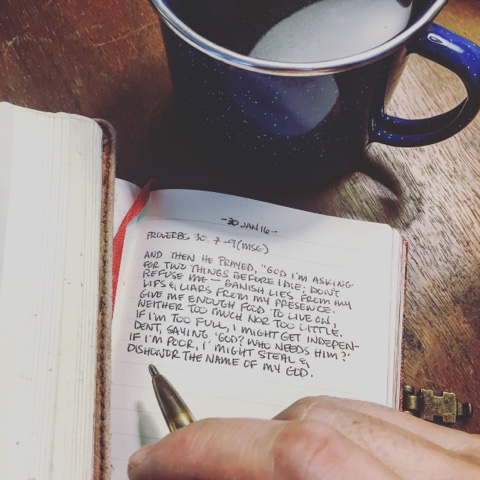 -30 JAN 16-
PROVERBS 30. 7-9 (MSG)
AND THEN HE PRAYED, "GOD I'M ASKING
FOR TWO THINGS BEFORE I DIE; DON'T
REFUSE ME — BANISH LIES FROM MY
LIPS & LIARS FROM MY PRESENCE.
GIVE ME ENOUGH FOOD TO LIVE ON,
NEITHER TOO MUCH NOR TOO LITTLE.
IF I'M TOO FULL, I MIGHT GET INDEPEN-
DENT, SAYING 'GOD? WHO NEEDS HIM?'
IF I'M POOR, I MIGHT STEAL &
DISHONOR THE NAME OF MY GOD.